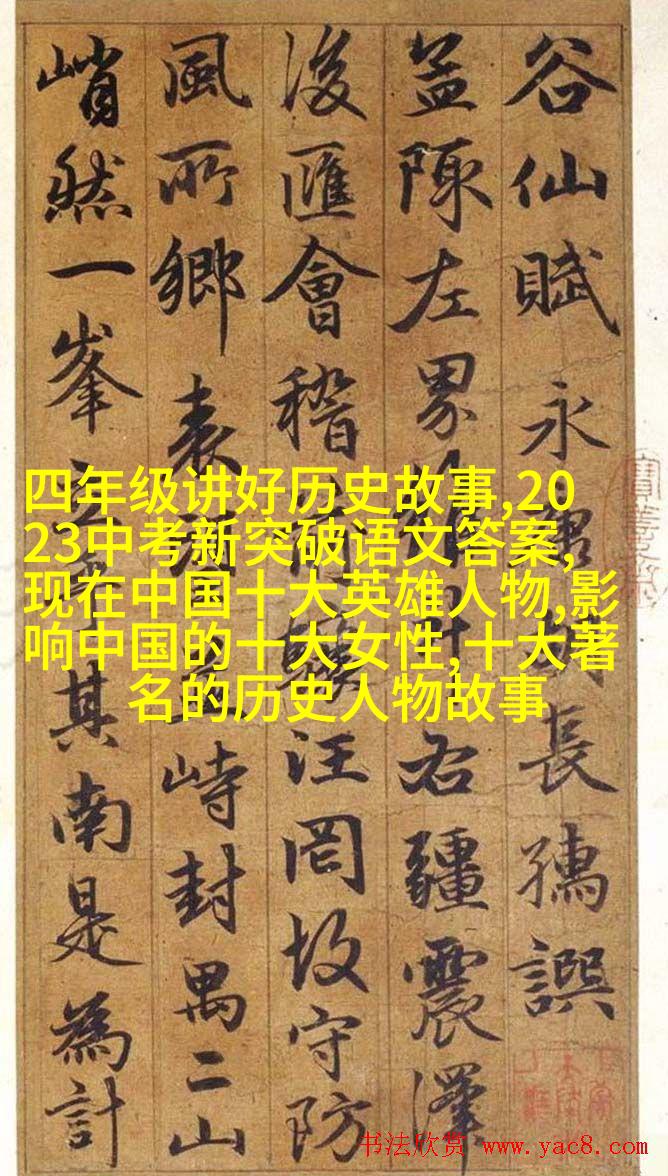 谷仙賦 永長孺譔
盖陳左界右疆震澤
浚匯會稽汪罔故守防
風所鄉表峙封禺二山
峭然一峯其南是為計
四年级讲好历史故事,20
23中考新突破语文答案,
现在中国十大英雄人物,影
响中国的十大女性,十大著
名的历史人物故事
书法欣赏 www.yac8.com